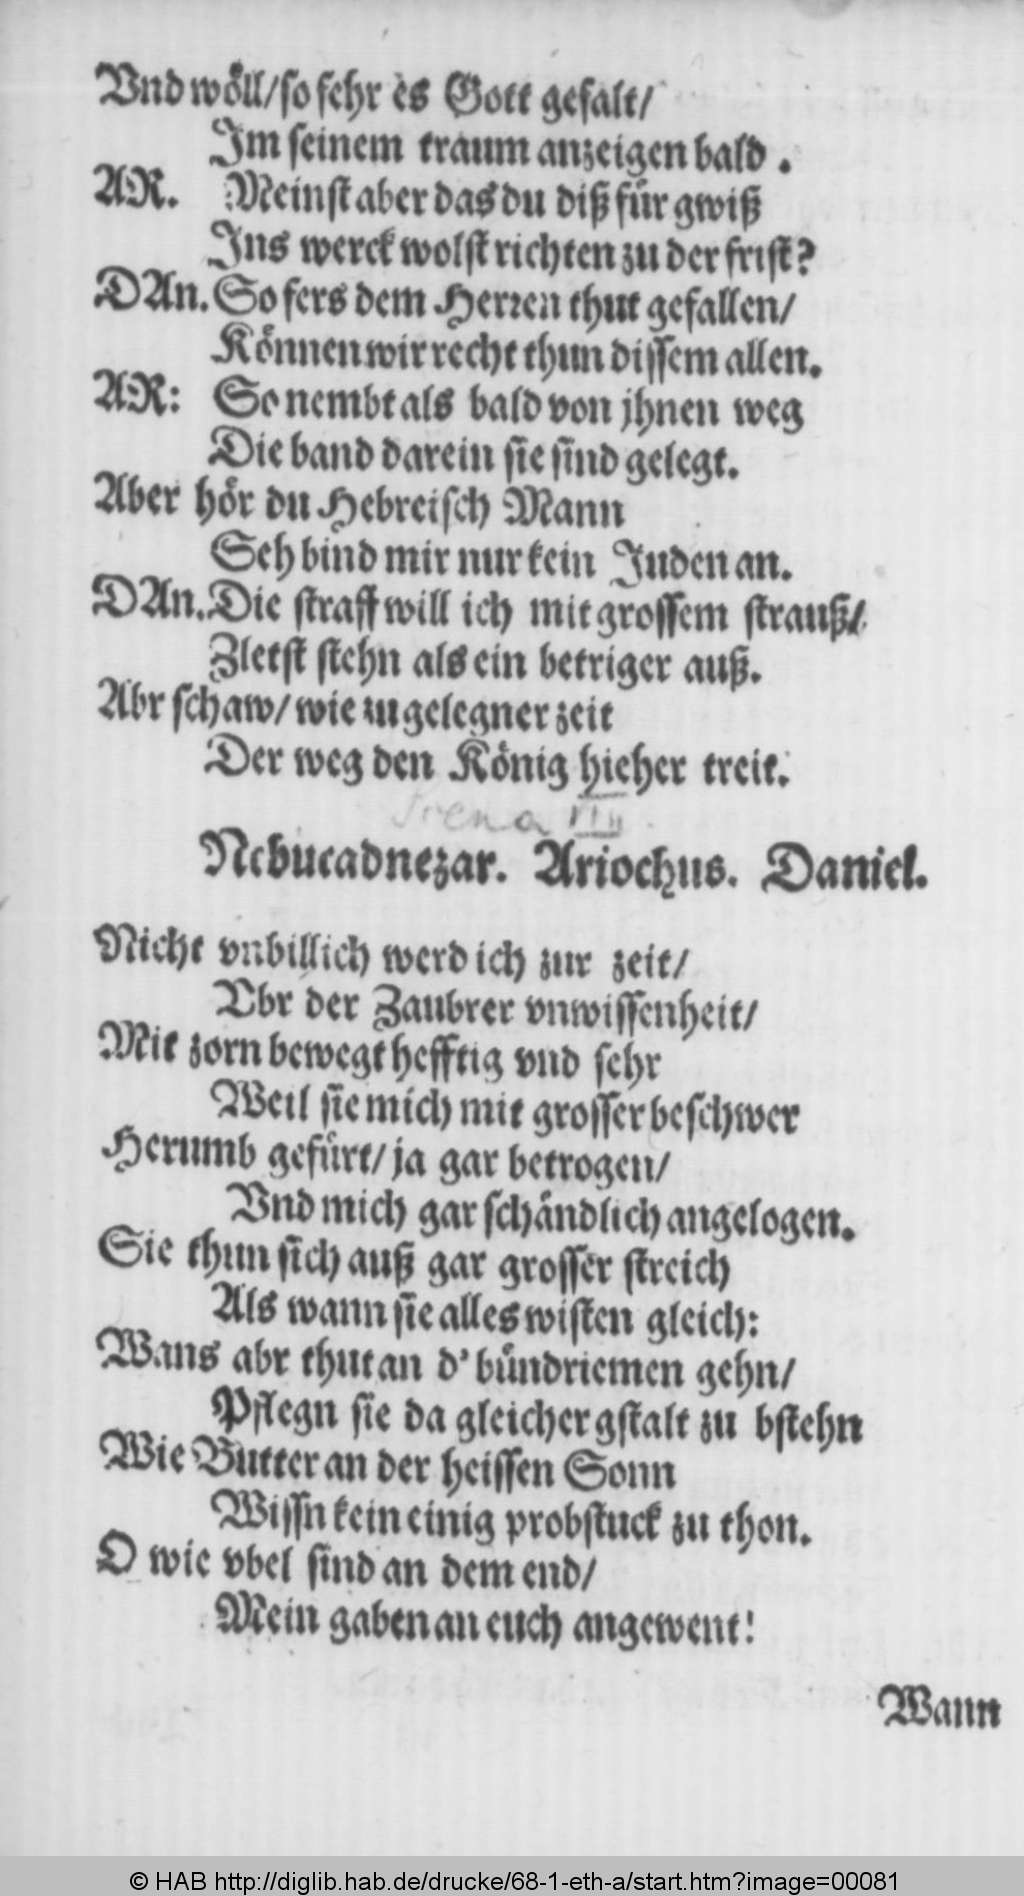 Vnd wöll/ so fehr es Gott gefalt/
Im seinem traum anzeigen bald.
AR. Meinst aber das du diß für gwiß
Ins werck wolst richten zu der frist?
DAn. So fers dem Herren thut gefallen/
Können wir recht thun dissem allen.
AR: So nembt als bald von jhnen weg
Die band darein sie sind gelegt.
Aber hör du Hebreisch Mann
Seh bind mir nur kein Juden an.
DAn. Die straff will ich mit grossem strauß/
Zletst stehn als ein betriger auß.
Abr schaw/ wie zu gelegner zeit
Der weg den König hieher treit.
Scena VIII
Nebucadnezar. Ariochus. Daniel.
Nicht vnbillich werd ich zur zeit/
Vbr der Zaubrer vnwissenheit/
Mit zorn bewegt hefftig vnd sehr
Weil sie mich mit grosser beschwer
Herumb gefürt/ ja gar betrogen/
Vnd mich gar schändlich angelogen.
Sie thun sich auß gar grosser streich
Als wann sie alles wisten gleich:
Wans abr thut an d' bündriemen gehn/
Pflegn sie da gleicher gstalt zu bstehn
Wie Butter an der heissen Sonn
Wissn kein einig probstuck zu thon.
O wie vbel sind an dem end/
Mein gaben an euch angewent!
Wann
© HAB http://diglib.hab.de/drucke/68-1-eth-a/start.htm?image=00081